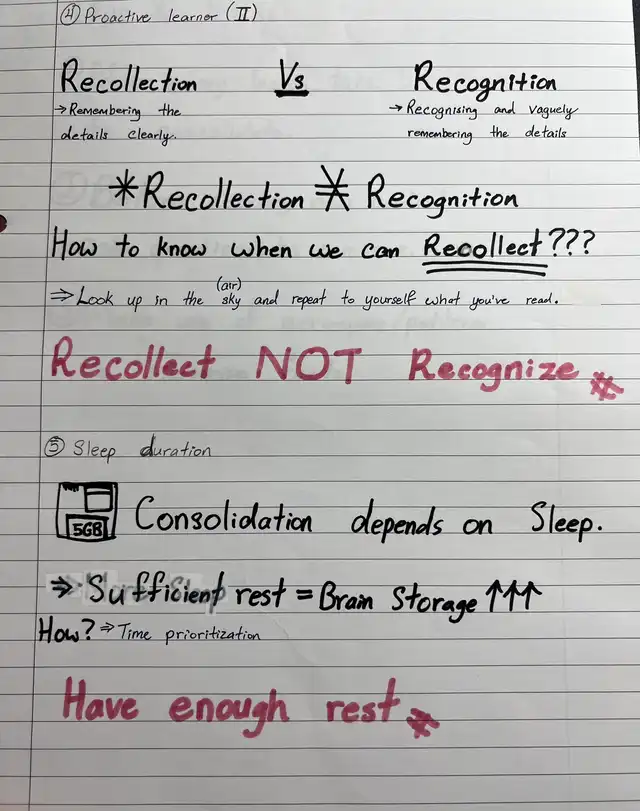 ④ Proactive learner (II)
Recollection Vs Recognition
→ Remembering the → Recognising and vaguely
details clearly. remembering the details
*Recollection ≠ Recognition
How to know when we can Recollect???
(air)
⇒ Look up in the sky and repeat to yourself what you've read.
Recollect NOT Recognize
⑤ Sleep duration
5GB Consolidation depends on Sleep.
⇒ Sufficient rest = Brain Storage ↑↑↑
How? ⇒ Time prioritization
Have enough rest